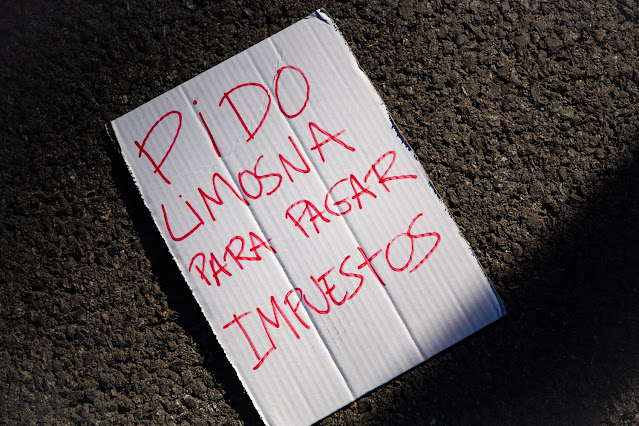 PiDO
LiMOSNA
PARA PAGAR
IMPUEStOS